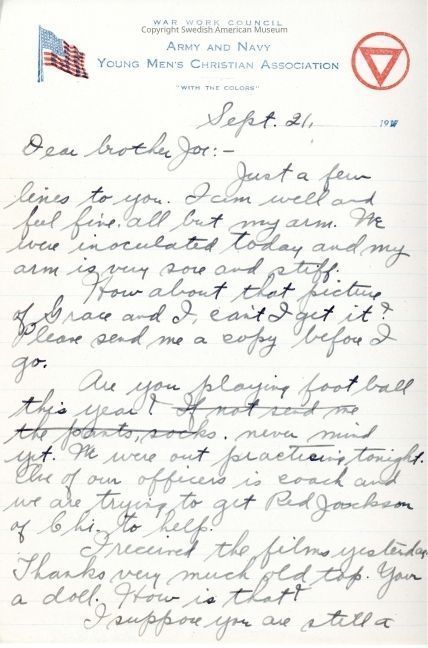 WAR WORK COUNCIL
Copyright Swedish American Museum
ARMY AND NAVY
YOUNG MEN'S CHRISTIAN ASSOCIATION
"WITH THE COLORS"
Sept. 21, 1917
Dear brother Joe:-
Just a few
lines to you. I am well and
feel fine all but my arm. We
were inoculated today and my
arm is very sore and stiff.
How about that picture
of Grace and I, can't I get it?
Please send me a copy before I
go.
Are you playing football
this year? If not send me
the pants, socks. never mind
yet. We were out practicing tonight.
One of our officers is coach and
we are trying to get Red Jackson
of Chi. to help.
I received the films yesterday
Thanks very much old top. Your
a doll. How is that?
I suppose you are still a